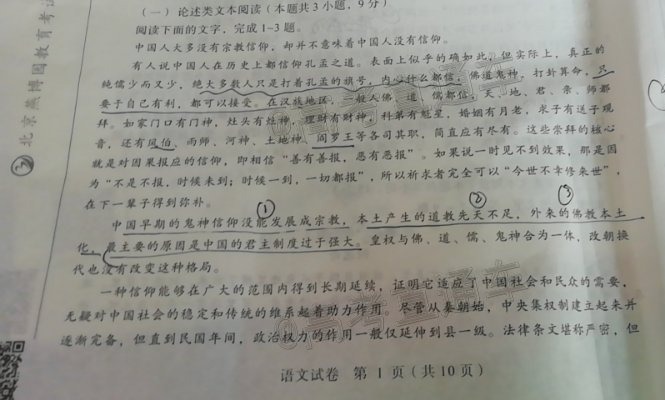 （一）论述类文本阅读（本题共3小题，9分）
阅读下面的文字，完成1~3题。
中国人大多没有宗教信仰，却并不意味着中国人没有信仰。
有人说中国人在历史上都信仰孔孟之道。表面上似乎的确如此，但实际上，真正的
纯儒少而又少，绝大多数人只是打着孔孟的旗号，内心什么都信，佛道鬼神，打卦算命，只
要于自己有利，都可以接受。在汉族地区，一般人佛、道、儒都信，天、地、君、亲、师都
拜。如家门口有门神，灶头有灶神，理财有财神，科第有魁星，婚姻有月老，求子有送子观
音，还有风伯、雨师、河神、土地神、阎罗王等各司其职，简直应有尽有。这些崇拜的核心
就是对因果报应的信仰，即相信“善有善报，恶有恶报”。如果说一时见不到效果，那是因
为“不是不报，时候未到；时候一到，一切都报”，所以祈求者完全可以“今世不幸修来世”，
在下一辈子得到弥补。
① ② ③
中国早期的鬼神信仰没能发展成宗教，本土产生的道教先天不足，外来的佛教本土
化，最主要的原因是中国的君主制度过于强大。皇权与佛、道、儒、鬼神合为一体，改朝换
代也没有改变这种格局。
一种信仰能够在广大的范围内得到长期延续，证明它适应了中国社会和民众的需要，
无疑对中国社会的稳定和传统的维系起着动力作用。尽管从秦朝始，中央集权制建立起来并
逐渐完备，但直到民国年间，政治权力的作用一般仅延伸到县一级。法律条文堪称严密，但
语文试卷 第 1 页（共 10 页）
北京燕博园教育考试